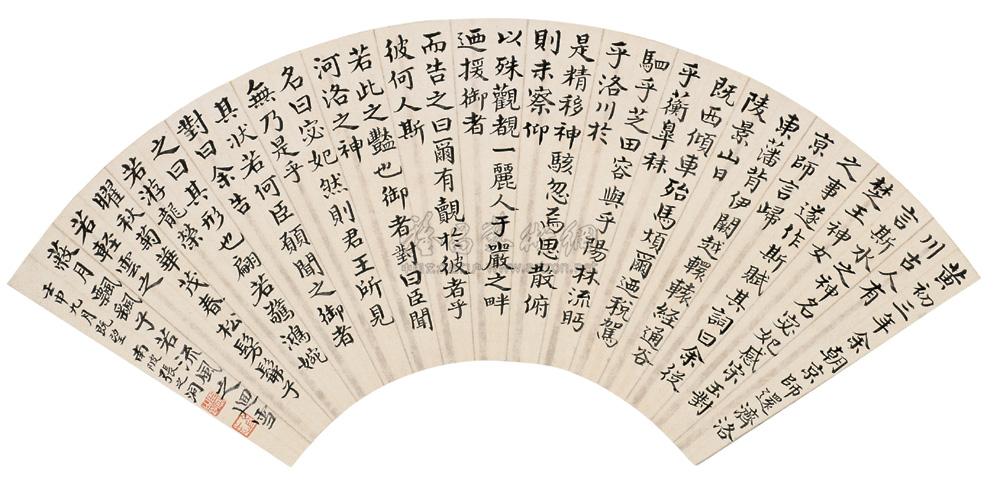 黄初三年余朝京師還濟洛
川古人有
言斯水之神名宓妃感宋玉對
楚王神女
之事遂作斯賦其詞曰余從
京師言歸
東藩背伊闕越轘轅經通谷
陵景山日
既西傾車殆馬煩爾迺税駕
乎蘅皐秣
駟乎芝田容與乎陽林流眄
乎洛川於
是精移神駭忽焉思散俯
則未察仰
以殊觀覩一麗人于巖之畔
迺援御者
而告之曰爾有覿於彼者乎
彼何人斯
若此之豔也御者對曰臣聞
河洛之神
名曰宓妃然則君王所見
無乃是乎
其状若何臣願聞之御者
對曰余告
之曰其形也翩若驚鴻婉
若游龍榮
曜秋菊華茂春松髣髴兮
若輕雲之
蔽月飄飖兮若流風之迴雪
壬申九月既望
南陂張之洞